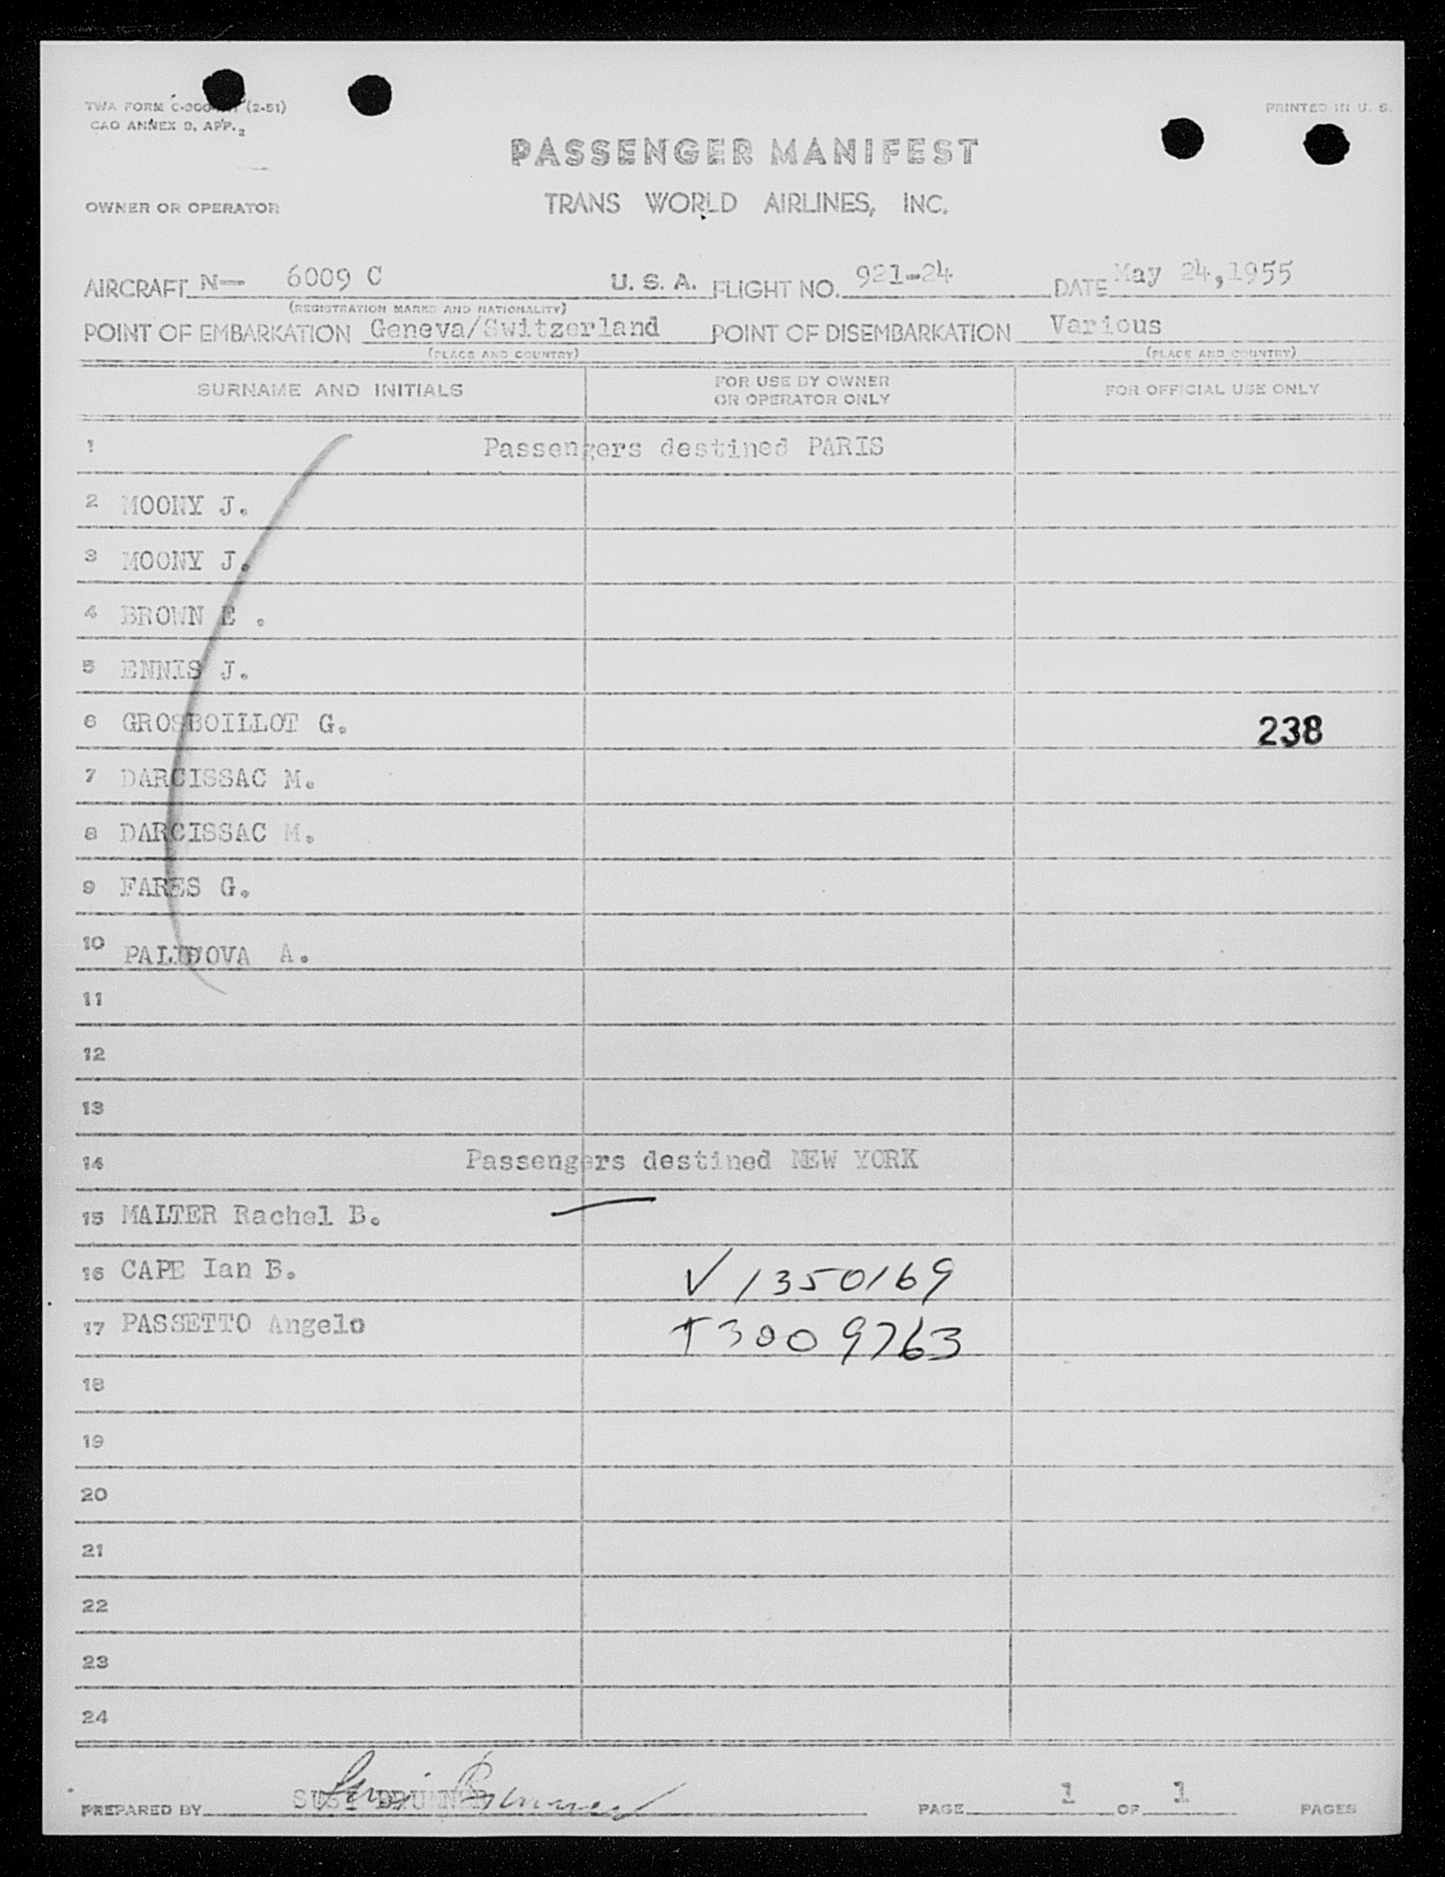 TWA FORM C-300 (2-51)
PRINTED IN U. S.
CAO ANNEX 9, APP. 2
PASSENGER MANIFEST
OWNER OR OPERATOR
TRANS WORLD AIRLINES, INC.
AIRCRAFT N— 6009 C U. S. A. FLIGHT NO. 921-24 DATE May 24,1955
(REGISTRATION MARKS AND NATIONALITY)
POINT OF EMBARKATION Geneva/Switzerland POINT OF DISEMBARKATION Various
(PLACE AND COUNTRY) (PLACE AND COUNTRY)
SURNAME AND INITIALS FOR USE BY OWNER OR OPERATOR ONLY FOR OFFICIAL USE ONLY
1 Passengers destined PARIS
2 MOONY J.
3 MOONY J.
4 BROWN E .
5 ENNIS J.
6 GROSBOILLOT G. 238
7 DARCISSAC M.
8 DARCISSAC M.
9 FARES G.
10 A.
11
12
13
14 Passengers destined NEW YORK
15 MALTER Rachel B.
16 CAPE Ian B. V 1350169
17 PASSETTO Angelo T3009763
18
19
20
21
22
23
24
PREPARED BY PAGE 1 OF 1 PAGES